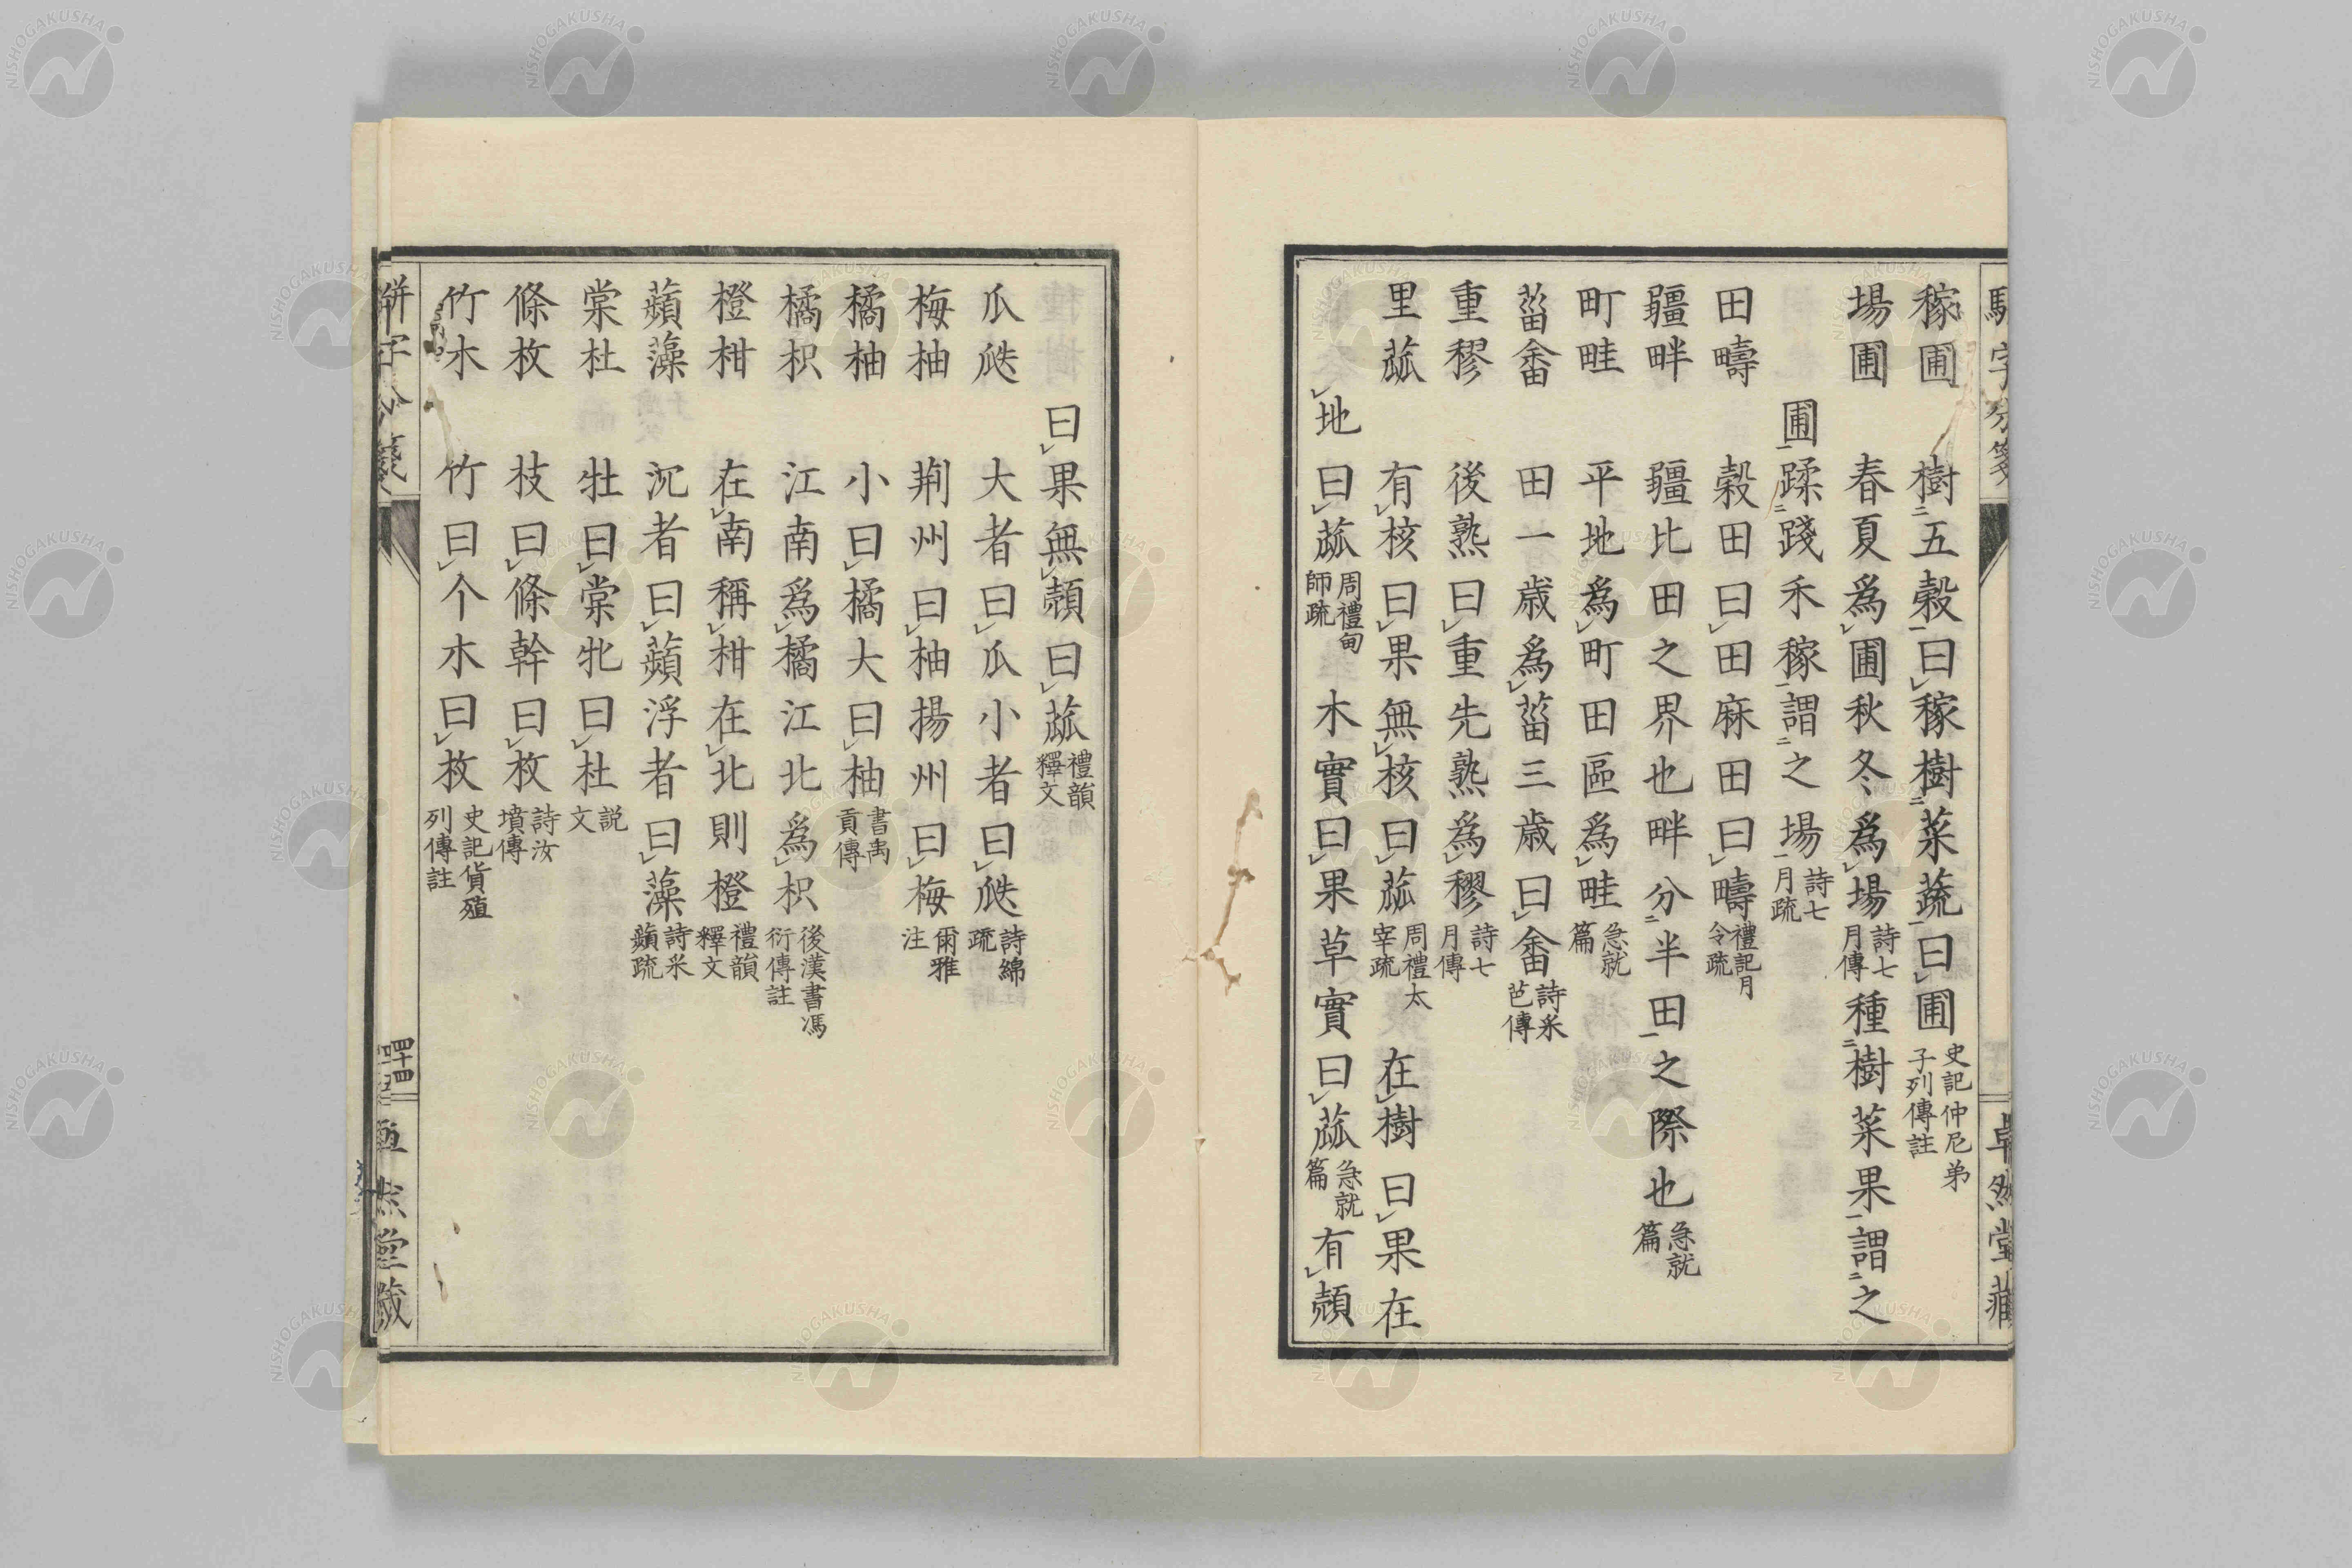 稼圃 樹五穀曰稼樹菜蔬曰圃 史記仲尼弟子列傳註
場圃 春夏爲圃秋冬爲場 詩七月傳 種樹菜果謂之
圃蹂踐禾稼謂之場 詩七月疏
田疇 穀田曰田麻田曰疇 禮記月令疏
疆畔 疆比田之界也畔分半田之際也 急就篇
町畦 平地爲町田區爲畦 急就篇
菑畬 田一歲爲菑三歲曰畬 詩采芑傳
重穋 後熟曰重先熟爲穋 詩七月傳
里蓏 有核曰果無核曰蓏 周禮太宰疏 在樹曰果在
地曰蓏 周禮甸師疏 木實曰果草實曰蓏 急就篇 有䫀
曰果無䫀曰蓏 禮韻釋文
瓜瓞 大者曰瓜小者曰瓞 詩綿疏
梅柚 荊州曰柚揚州曰梅 爾雅注
橘柚 小曰橘大曰柚 書禹貢傳
橘枳 江南爲橘江北爲枳 後漢書馮衍傳註
橙柑 在南稱柑在北則橙 禮韻釋文
蘋藻 沉者曰蘋浮者曰藻 詩采蘋疏
棠杜 牡曰棠牝曰杜 説文
條枚 枝曰條幹曰枚 詩汝墳傳
竹木 竹曰个木曰枚 史記貨殖列傳註
四十四
NISHOGAKUSHA